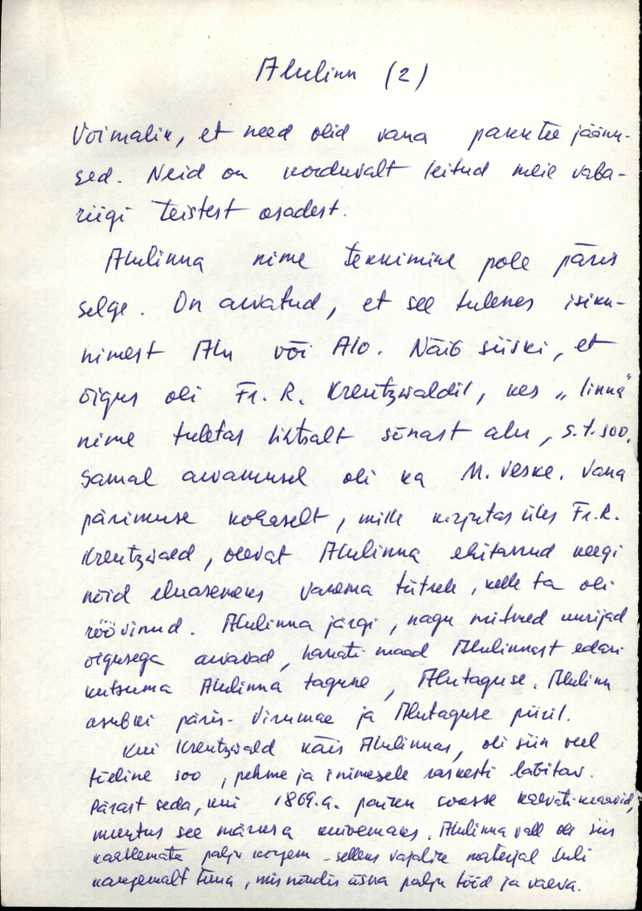 Alulinn (2)
Võimalik, et need olid vana pakutee jäänu-
sed. Neid on korduvalt leitud meie vaba-
riigi teistest osadest.
Alulinna nime tekkimine pole päris
selge. On arvatud, et see tulenes isiku-
nimest Alu või Alo. Näib siiski, et
õigus oli Fr. R. Kreutzwaldil, kes „linna"
nime tuletas lihtsalt sõnast alu, s.t. soo.
Samal arvamusel oli ka M. Veske. Vana
pärimuse kohaselt, mille kirjutas üles Fr. R.
Kreutzwald, olevat Alulinna ehitanud keegi
nõid eluasemeks vanema tütrele, kelle ta oli
röövinud. Alulinna järgi, nagu mitmed uurijad
õigusega arvavad, hakati maad Alulinnast edasi
kutsuma Alulinna tagune, Alutaguse. Alulinn
asubki päris-Virumaa ja Alutaguse piiril.
Kui Kreutzwald käis Alulinnas, oli siin veel
tüdine soo, pehme ja inimesele raskesti läbitav.
Pärast seda, kui 1869. a. paiku soosse kaevati kraavid,
muutus see märksa kuivemaks. Alulinna vall oli siis
kahtlemata palju kõrgem - selleks vajalik materjal tuli
kaugemalt tuua, mis nõudis üsna palju tööd ja vaeva.